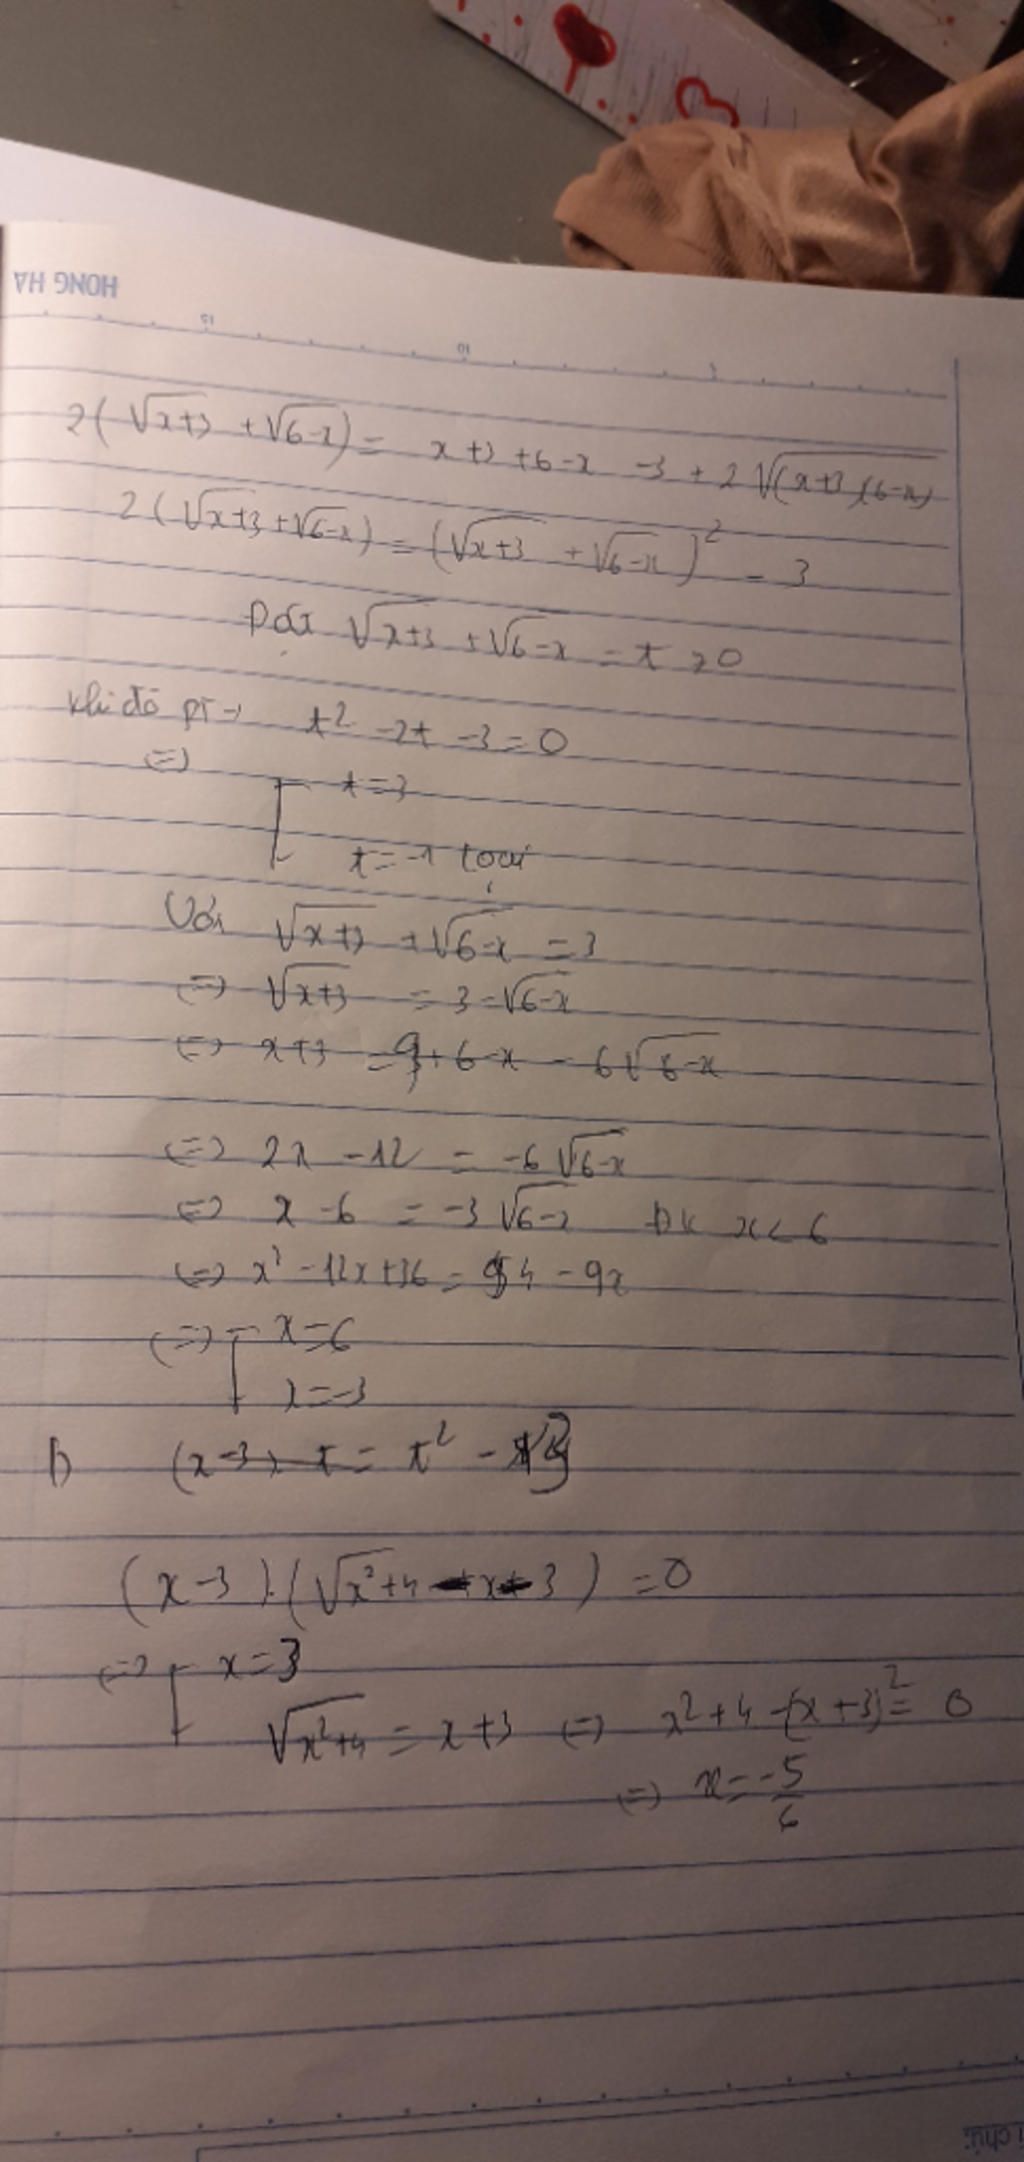 HONG HA
15 10 5
2(√(x+3) + √(6-x)) = x+3+6-x -3 + 2√((x+3)(6-x))
2(√(x+3)+√(6-x)) = (√(x+3) + √(6-x))² - 3
Đặt √(x+3) + √(6-x) = t >0
Khi đó pt → t² -2t -3=0
(=) t=3
t=-1 loại
Với √(x+3) + √(6-x) = 3
(=) √(x+3) = 3-√(6-x)
(=) x+3 = 9+6-x - 6√(6-x)
(=) 2x -12 = -6√(6-x)
(=) x -6 = -3√(6-x) Đk x<6
(=) x² -12x+36 = 54 -9x
(=) x=6
x=-3
b (x-3) t = t² -
(x-3).(√(x²+4) - x - 3) =0
(=) x=3
√(x²+4) = x+3 (=) x²+4-(x+3)² = 0
(=) x = -5/6
chú: